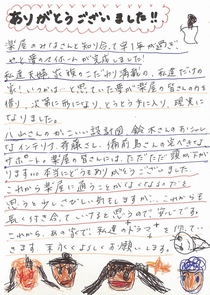 ありがとうございました!!
楽屋のみなさんと知り合って早1年が過ぎ、
やっと夢のマイホームが完成しました!
私達夫婦、家族のこだわり満載の、私達だけの
家!いつかは…と思っていた夢が楽屋の皆さんの力を
借り、次第に形になり、とうとう手に入り、現実に
なりました。
八山さんのかっこいい設計図、鈴木さんのおしゃれ
なインテリア、斉藤さん、備前島さんの完ぺきな
サポート。楽屋の皆さんには、ただただ頭が下が
ります。本当にどうもありがとうございました。
これから楽屋に通うことがなくなるのだと
思うと少しさびしい気もしますが、これからも
長く付き合っていけると思うので安心です。
これから、あの家で、私達のドラマを作って、い
きます。末永くよろしくお願いします。